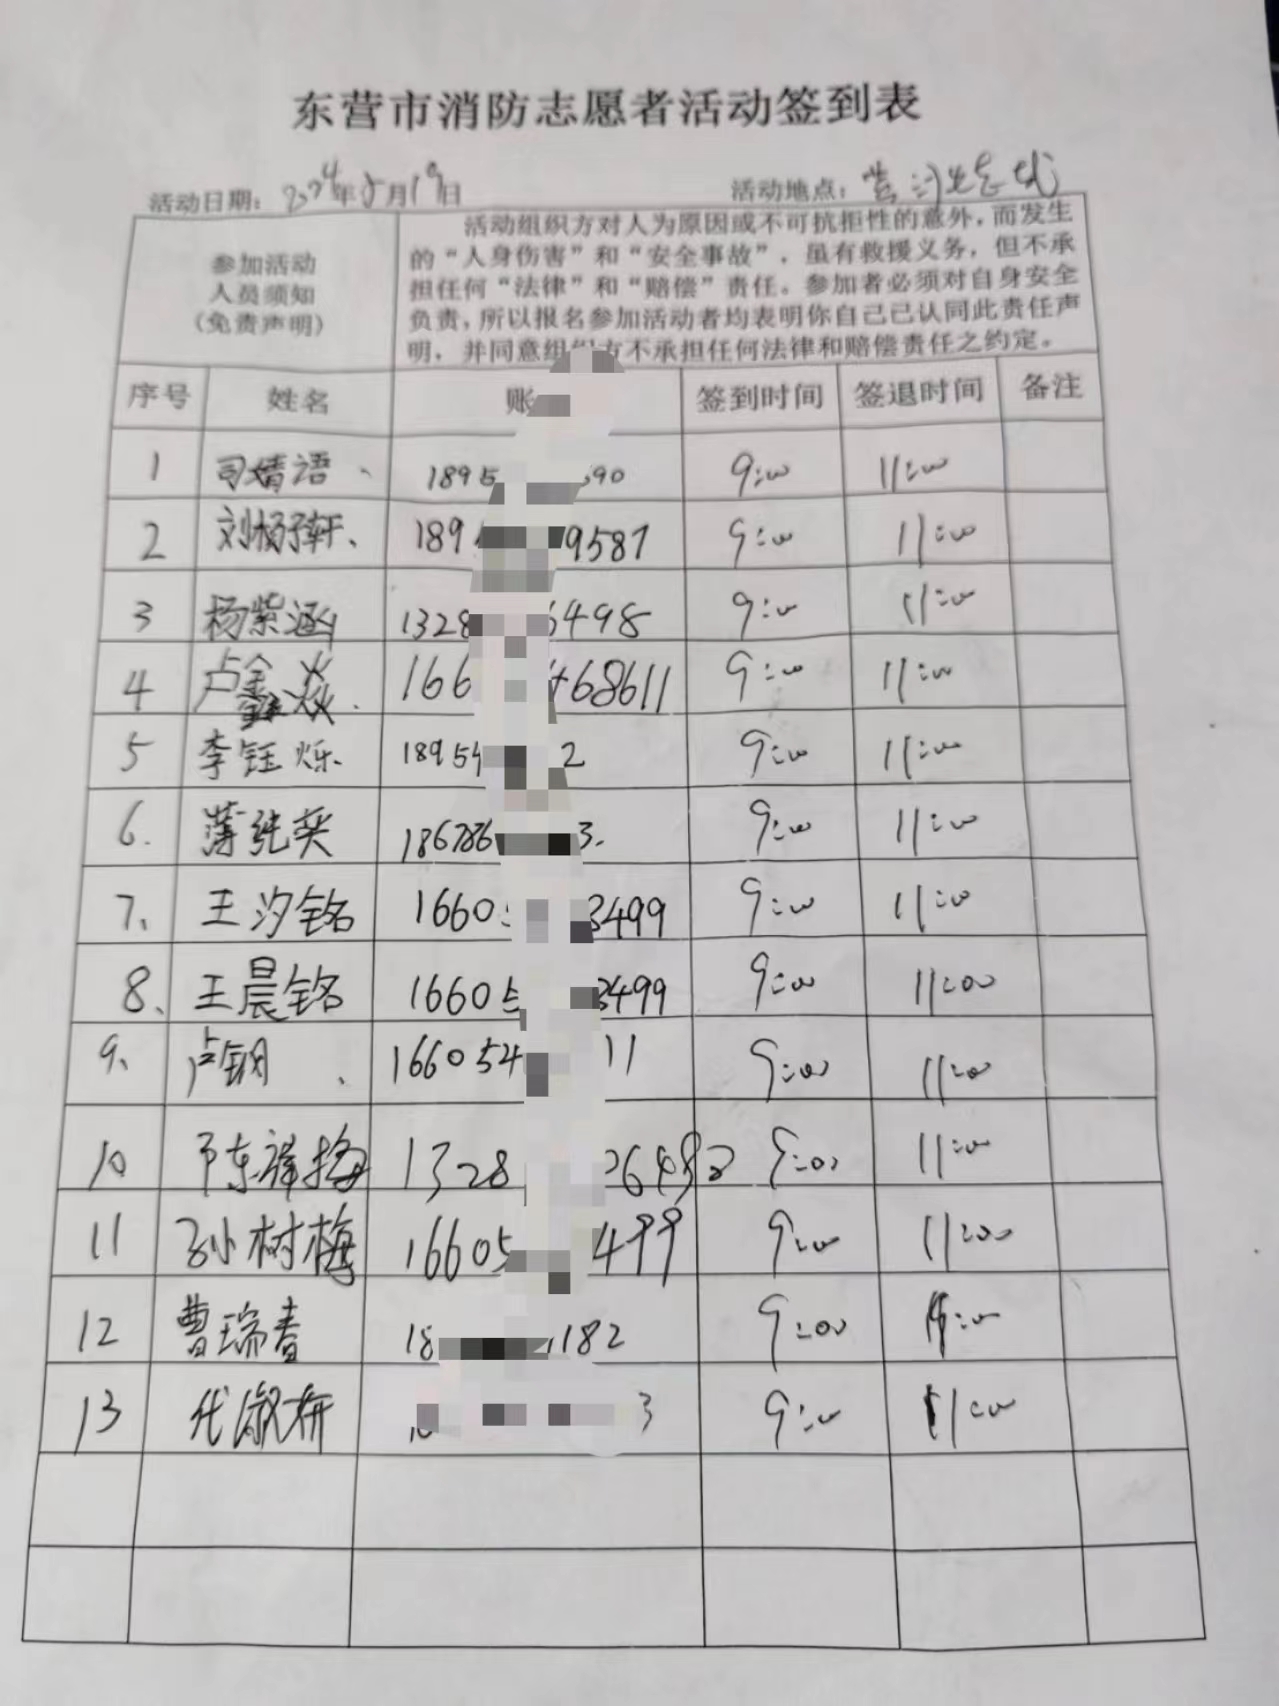 东营市消防志愿者活动签到表
活动日期：2024年5月19日 活动地点：
参加活动
人员须知
（免责声明）
活动组织方对人为原因或不可抗拒性的意外，而发生
的“人身伤害”和“安全事故”，虽有救援义务，但不承
担任何“法律”和“赔偿”责任。参加者必须对自身安全
负责，所以报名参加活动者均表明你自己已认同此责任声
明，并同意组织方不承担任何法律和赔偿责任之约定。
序号 姓名 账 签到时间 签退时间 备注
1 司婧语、 1895 90 9:00 11:00
2 刘杨轩、 189 9587 9:00 11:00
3 杨紫涵 1328 6498 9:00 11:00
4 卢鑫焱. 166 468611 9:00 11:00
5 李钰烁. 1895 2 9:00 11:00
6. 薄纯奕 186786 3. 9:00 11:00
7、 王汐铭 1660 3499 9:00 11:00
8、 王晨铭 16605 3499 9:00 11:00
9、 卢钢、 166054 11 9:00 11:00
10 陈祥梅 1328 9:00 11:00
11 孙树梅 16605 499 9:00 11:00
12 曹瑞春 18 182 9:00 11:00
13 代淑妍 3 9:00 11:00